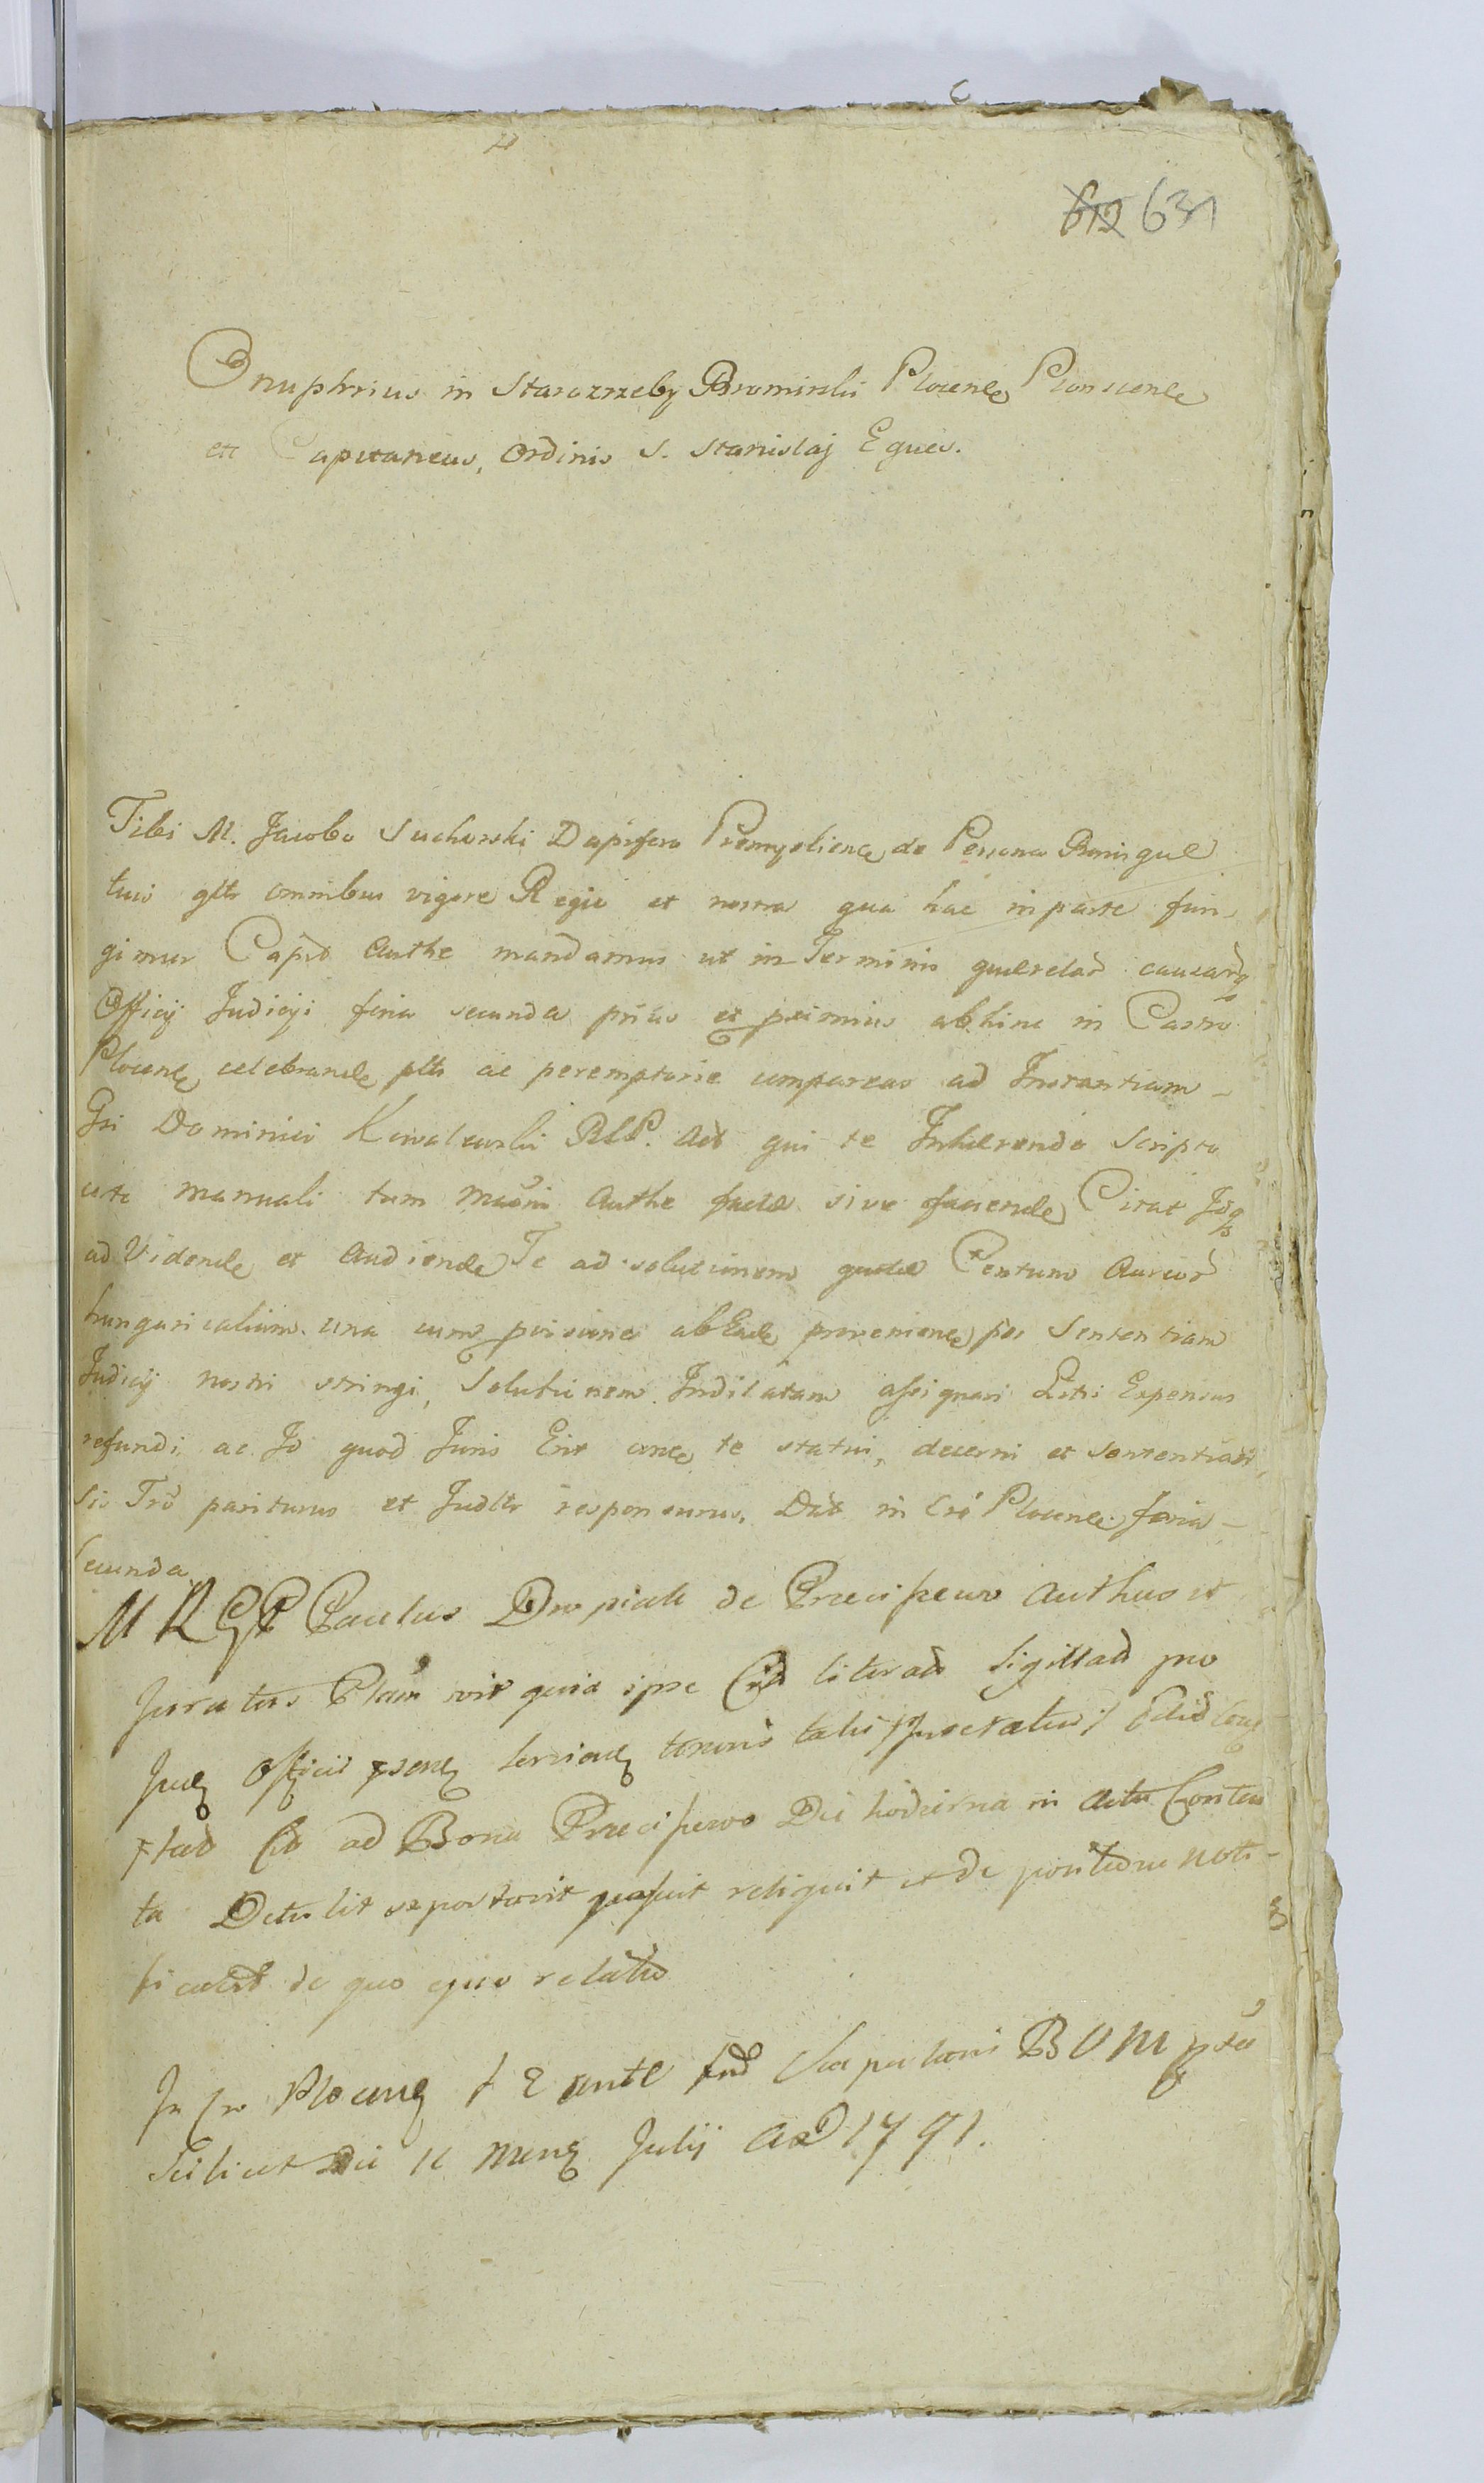 612 631
Onuphrius in Starozrzeby Bromirski Plocens Plonscens
etc Capitaneus, Ordinis S. Stanislaj Eques.
Tibi M. Jacobo Suchorski Dapifero Premyslienc de Persona Bonisque
tuis gltr omnibus vigore Regia et nostra qua hac in parte fun-
gimur Captli Authe mandamus ut in Terminis querelar causarq
Officij Judicyi feria secunda prius et primius abhinc in Castro
Plocens celebrande pltr ac peremptorie compareas ad Instantiam
Gsi Dominici Kowalewski Act qui te Inhaerendo Scripto
manuali tum Authe factae sive faciende Citat Idq
ad Videnda et Audienda Te ad solutionem Centum Aureor
hungaricalium una cum provisione ab Eade proveniente per Sententiam
Judicij nostri stringi, Solutionem Indilatam assignari Litis Expensas
refundi ac Id quod Juris Erit circa te statui, decerni et Sententiari,
Sis Tro pariturus et Judltr responsurus. Dat in Cro Plocens feria
secunda.
M R G P Paulus Dropiak de Przeciszewo Authus et
Juratus quia ipse literas Sigillat pro
Juq Officii
ad Bona Przeciszewo Die hodierna in actu Conten
ta Detulit reportavit posuit reliquit et de positione noti-
ficavit de quo ejus relatio
In Cro Plocens f 2 ante fest Scapularis B V M
Scilicet Die 11 Mens Julij A D 1791.